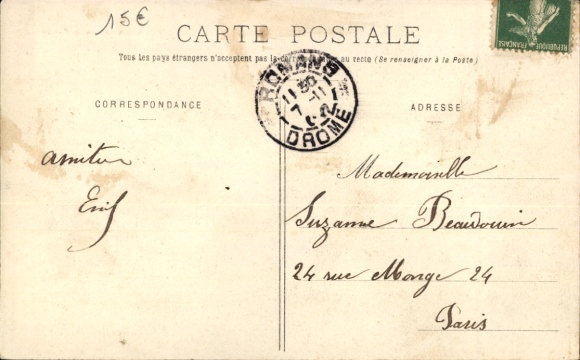 15€
CARTE POSTALE
Tous les pays étrangers n'acceptent pas la correspondance au recto (Se renseigner à la Poste)
REPUBLIQUE FRANÇAISE
ROMANS
11 30
7 - 11
DROME
CORRESPONDANCE
ADRESSE
Mademoiselle
Suzanne Beaudouin
24 rue Monge 24
Paris